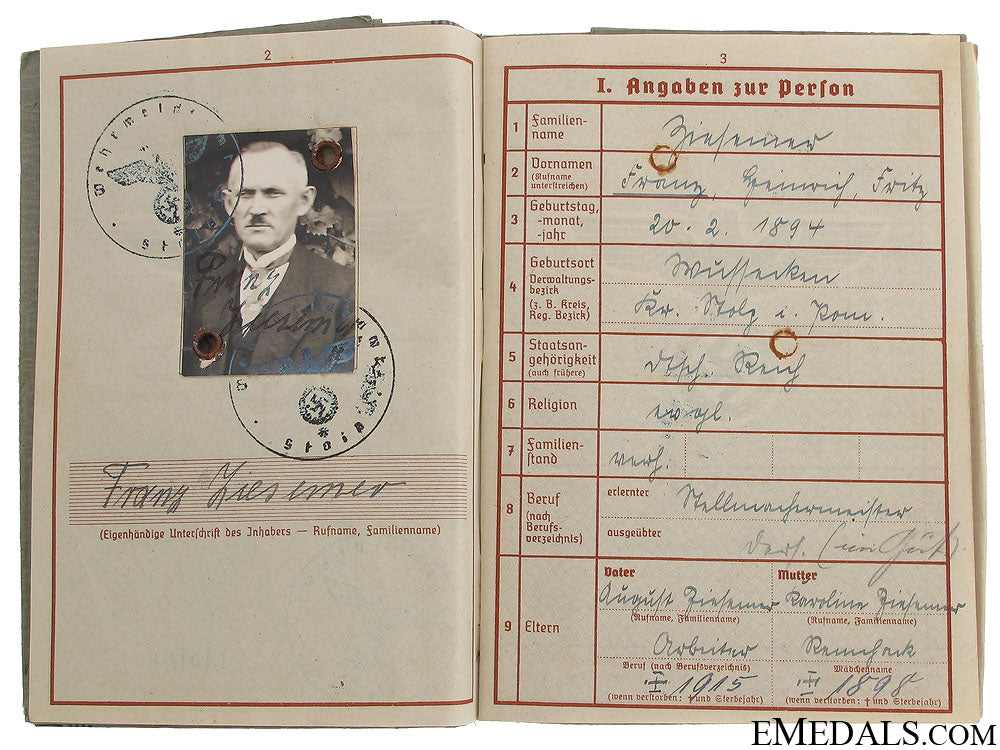 2
Wehrmeldeamt
Stolp
Franz
Ziesemer
Wehrmeldeamt
Stolp
Franz Ziesemer
(Eigenhändige Unterschrift des Inhabers — Rufname, Familienname)
3
I. Angaben zur Person
1 Familien-
name
Ziesemer
2 Vornamen
(Rufname
unterstreichen)
Franz, Heinrich, Fritz
3 Geburtstag,
-monat,
-jahr
20. 2. 1894
4 Geburtsort
Verwaltungs-
bezirk
(z. B. Kreis,
Reg. Bezirk)
Wussecken
Kr. Stolp i. Pom.
5 Staatsan-
gehörigkeit
(auch frühere)
dtsch. Reich
6 Religion
evgl.
7 Familien-
stand
verh.
8 Beruf
(nach
Berufs-
verzeichnis)
erlernter Stellmachermeister
ausgeübter ders. (im
9 Eltern
Vater
August Ziesemer
(Rufname, Familienname)
Arbeiter
Beruf (nach Berufsverzeichnis)
† 1915
(wenn verstorben: † und Sterbejahr)
Mutter
Karoline Ziesemer
(Rufname, Familienname)
Mädchenname
† 1898
(wenn verstorben: † und Sterbejahr)
EMEDALS.COM